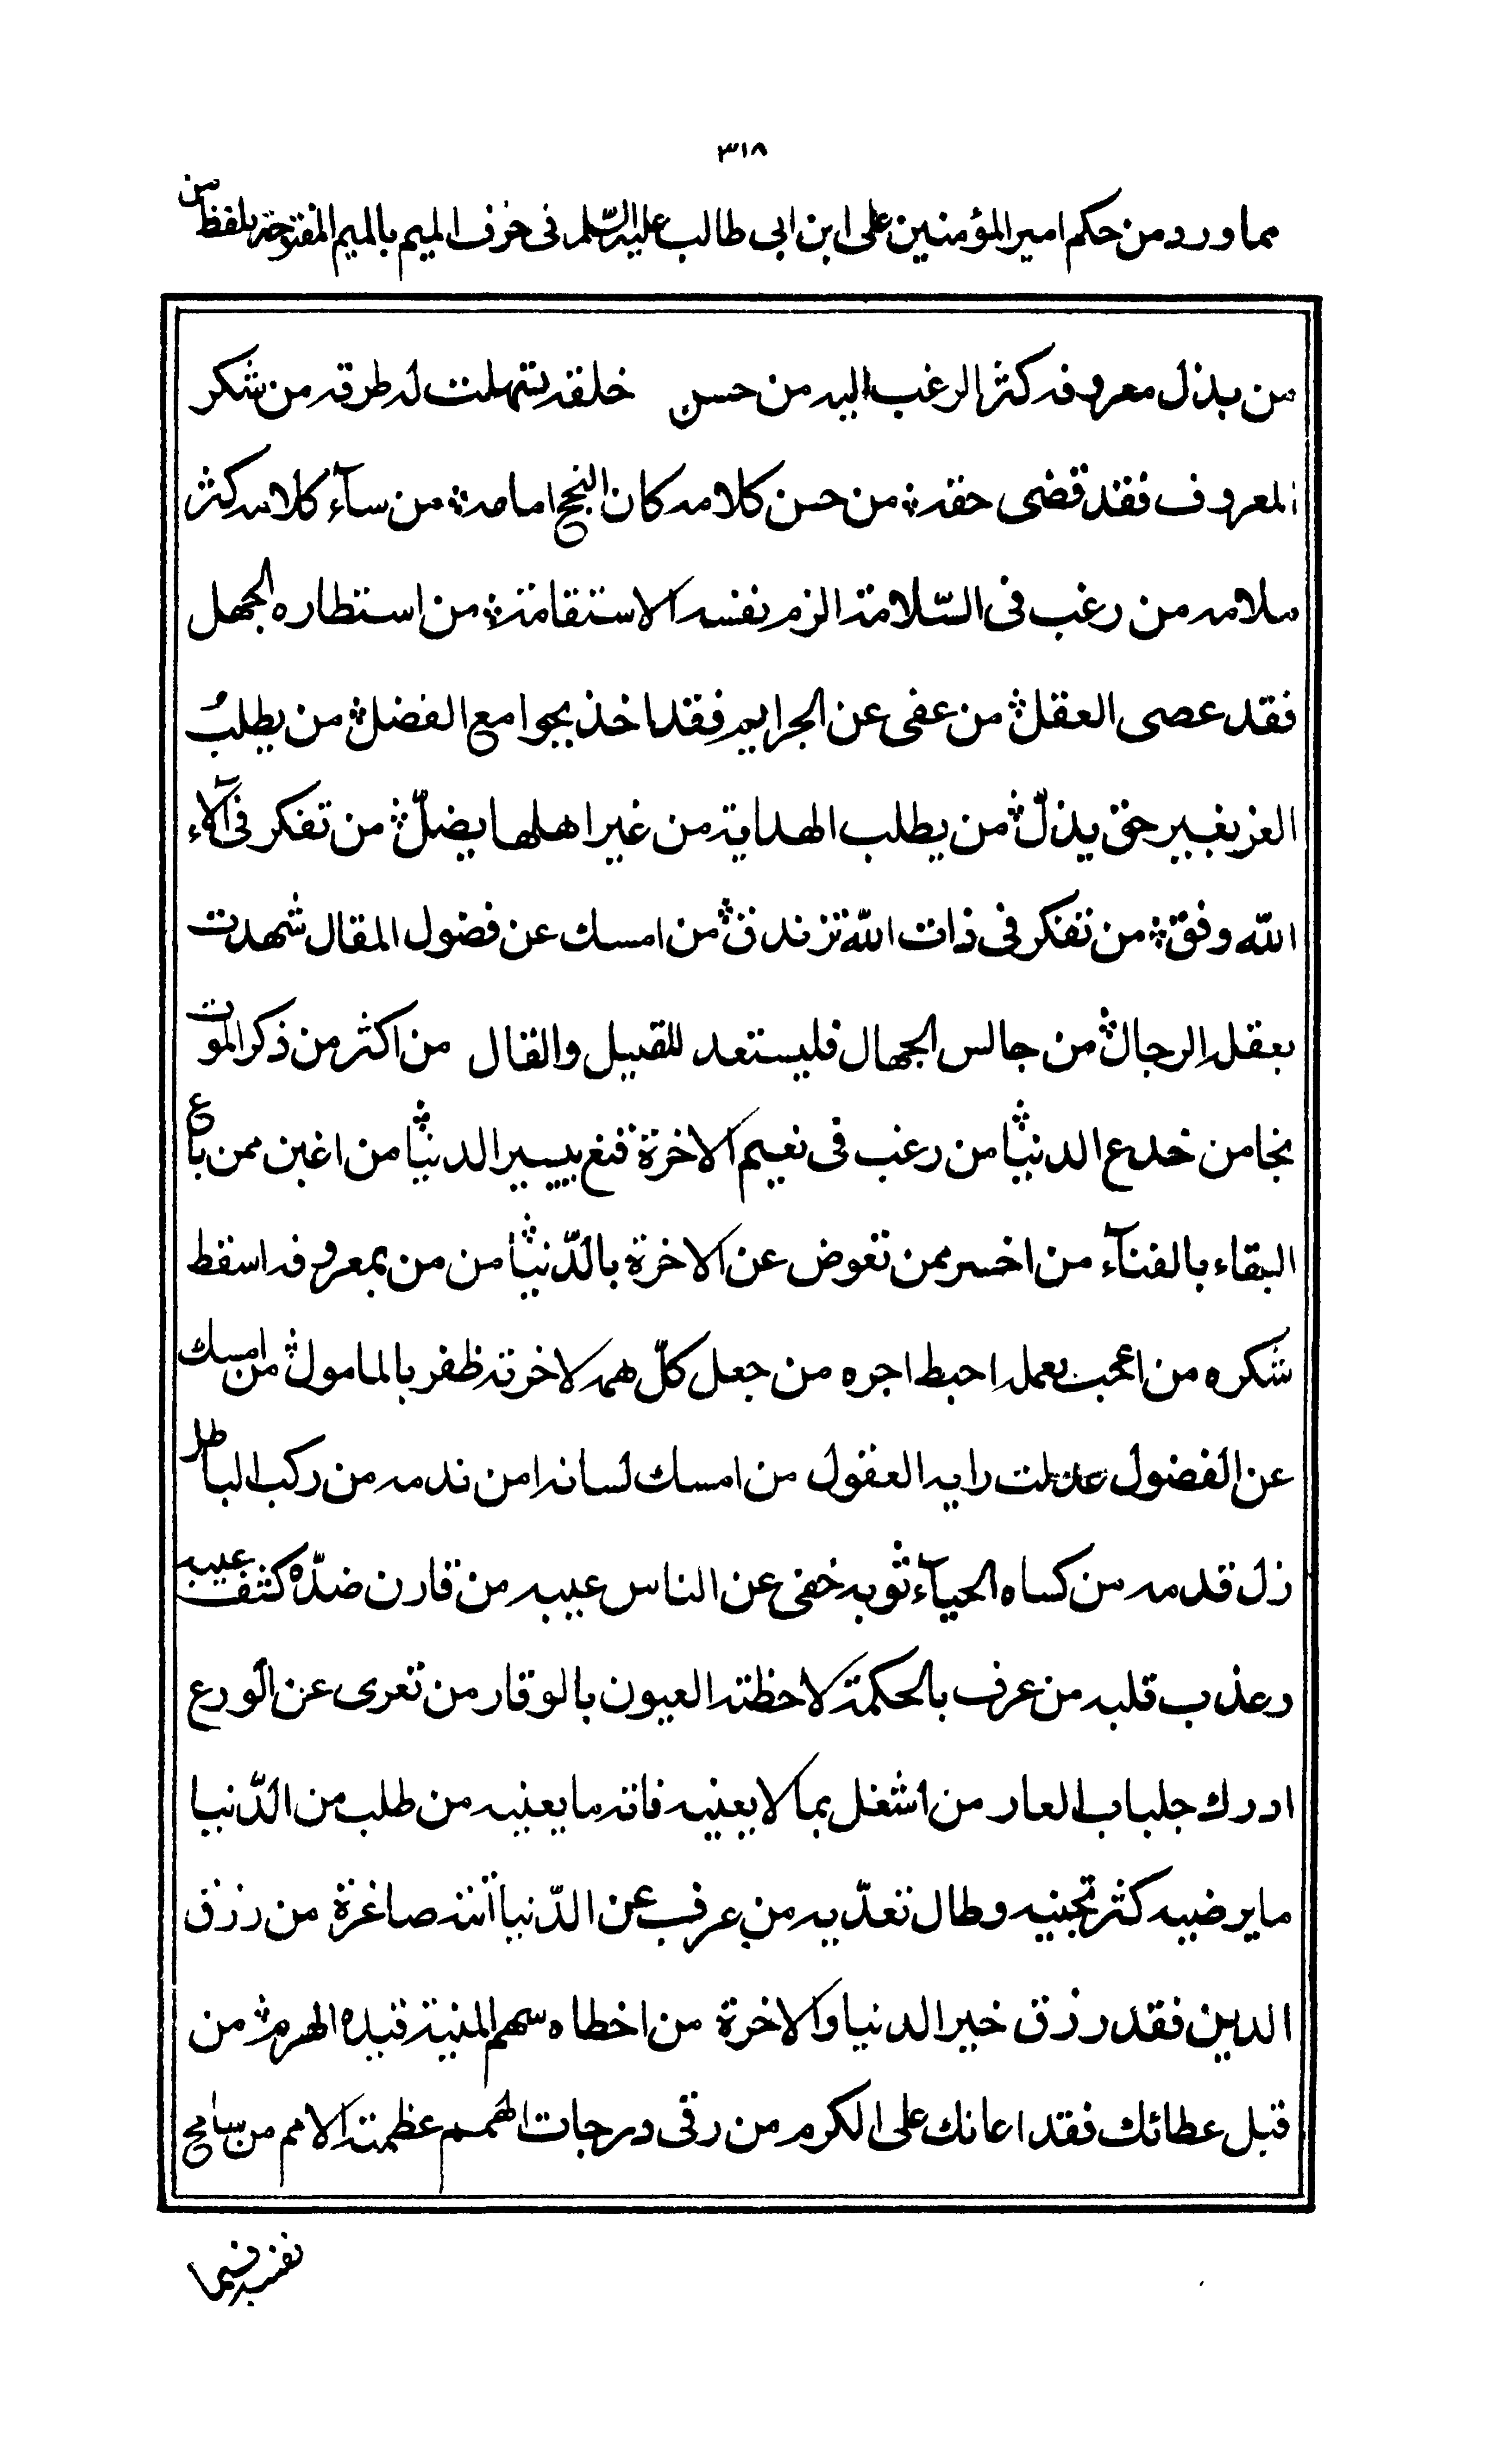 ٣١٨
مما ورد من حكم امير المؤمنين على ابن ابى طالب عليه السّلم فى حرف الميم بالميم المفتوحة بلفظ من
من بذل معروفه كثر الرغب اليه من حسن خلقه سهلت له طرقه من شكر
المعروف فقد قضى حقه من حسن كلامه كان النجح امامه من سآء كلامه كثر
ملامه من رغب فى السّلامة الزم نفسه الاستقامة من استطاره الجهل
فقد عصى العقل من عفى عن الجرايم فقد اخذ بجوامع الفضل من يطلب
العز بغير حق يذلّ من يطلب الهداية من غير اهلها يضلّ من تفكر فى آلآء
اللّه وفق من تفكر فى ذات اللّه تزندق من امسك عن فضول المقال شهدت
بعقله الرجال من جالس الجهال فليستعد للقيل والقال من اكثر من ذكر الموت
نجا من خدع الدنيا من رغب فى نعيم الاخرة قنع بيسير الدنيا من اغبن ممن باع
البقاء بالفنآء من اخسر ممن تعوض عن الاخرة بالدّنيا من من بمعروفه اسقط
شكره من اعجب بعمله احبط اجره من جعل كلّ همه لاخرته ظفر بالمامول من امسك
عن الفضول عدلت رايه العقول من امسك لسانه امن ندمه من ركب الباطل
زل قدمه من كساه الحيآء ثوبه خفى عن الناس عيبه من قارن ضدّه كشف عيبه
وعذب قلبه من عرف بالحكمة لاحظته العيون بالوقار من تعرى عن الورع
ادرك جلباب العار من اشغل بما لا يعنيه فاته ما يعنيه من طلب من الدّنيا
ما يرضيه كثر تجنيه وطال تعدّيه من عزف عن الدّنيا اتته صاغرة من رزق
الدين فقد رزق خير الدنيا والاخرة من اخطاه سهم المنية قيده الهرم من
قبل عطائك فقد اعانك على الكرم من رقى درجات الهمم عظمته الامم من سامح
نفسه فيما